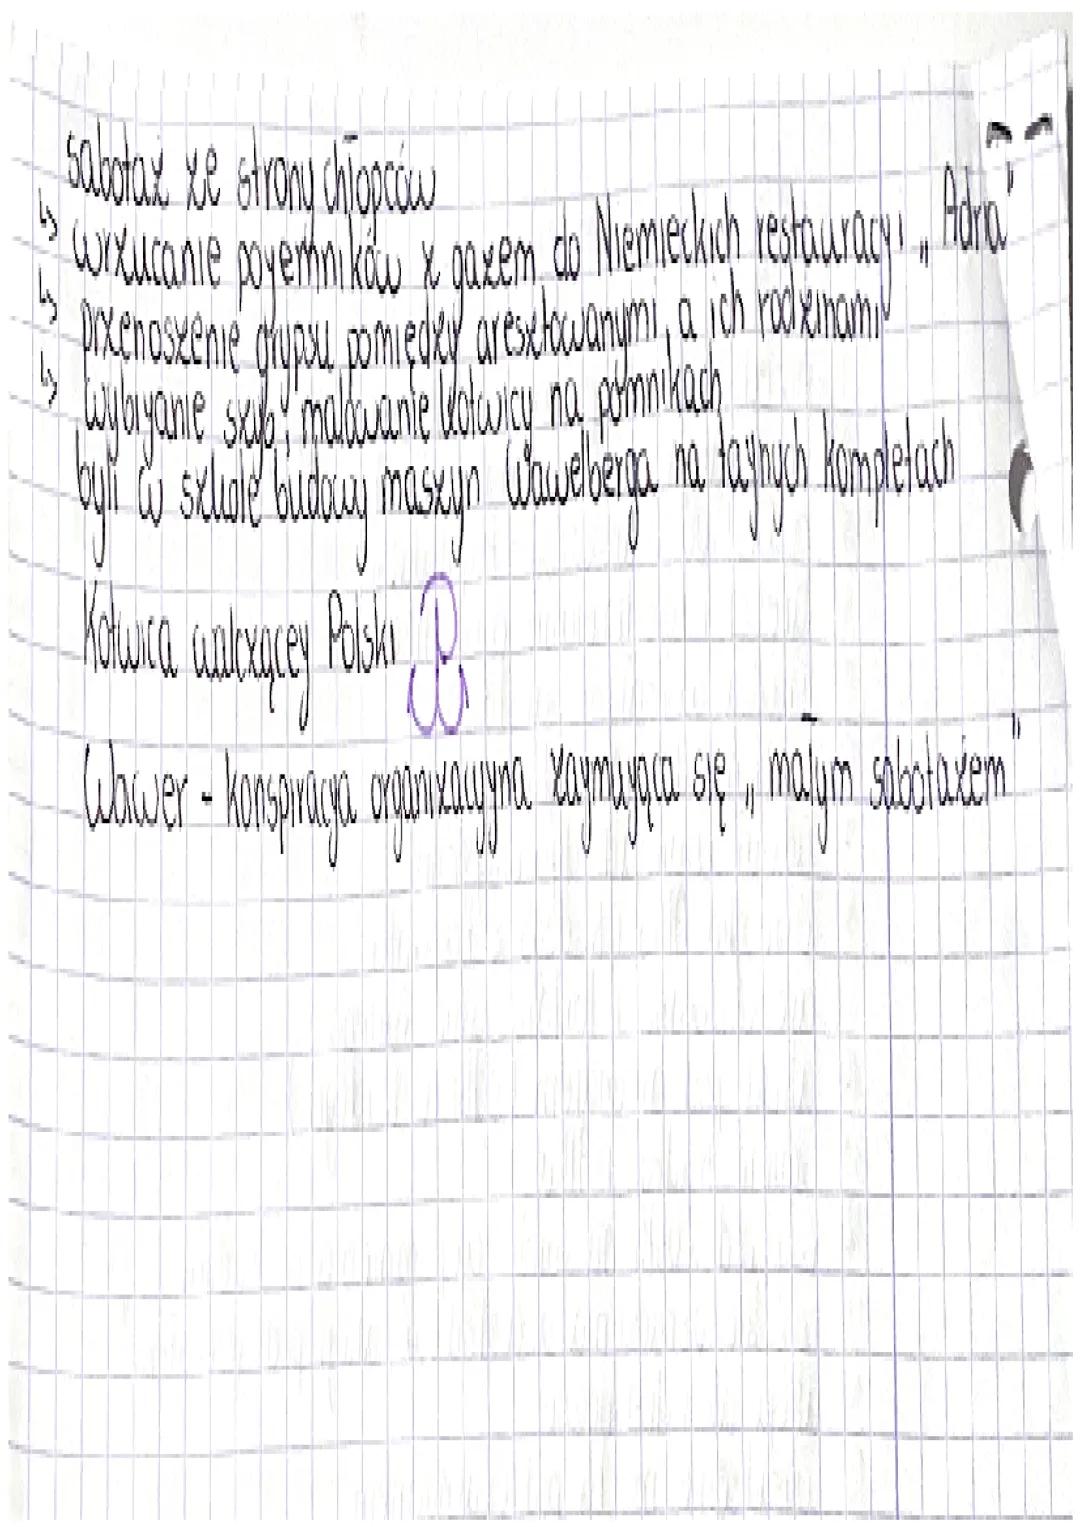 sabotaż ze strony chłopców
↳ wrzucanie pojemników z gazem do Niemieckich restauracji „Adria”
↳ przenoszenie grypsu, pomiędzy aresztowanymi, a ich rodzinami
↳ wybijanie szyb, malowanie kotwicy na pomnikach
byli w szkole budowy maszyn Wawelberga na tajnych kompletach
Kotwica walczącej Polski
Wawer - konspiracja organizacyjna zajmująca się „małym sabotażem”